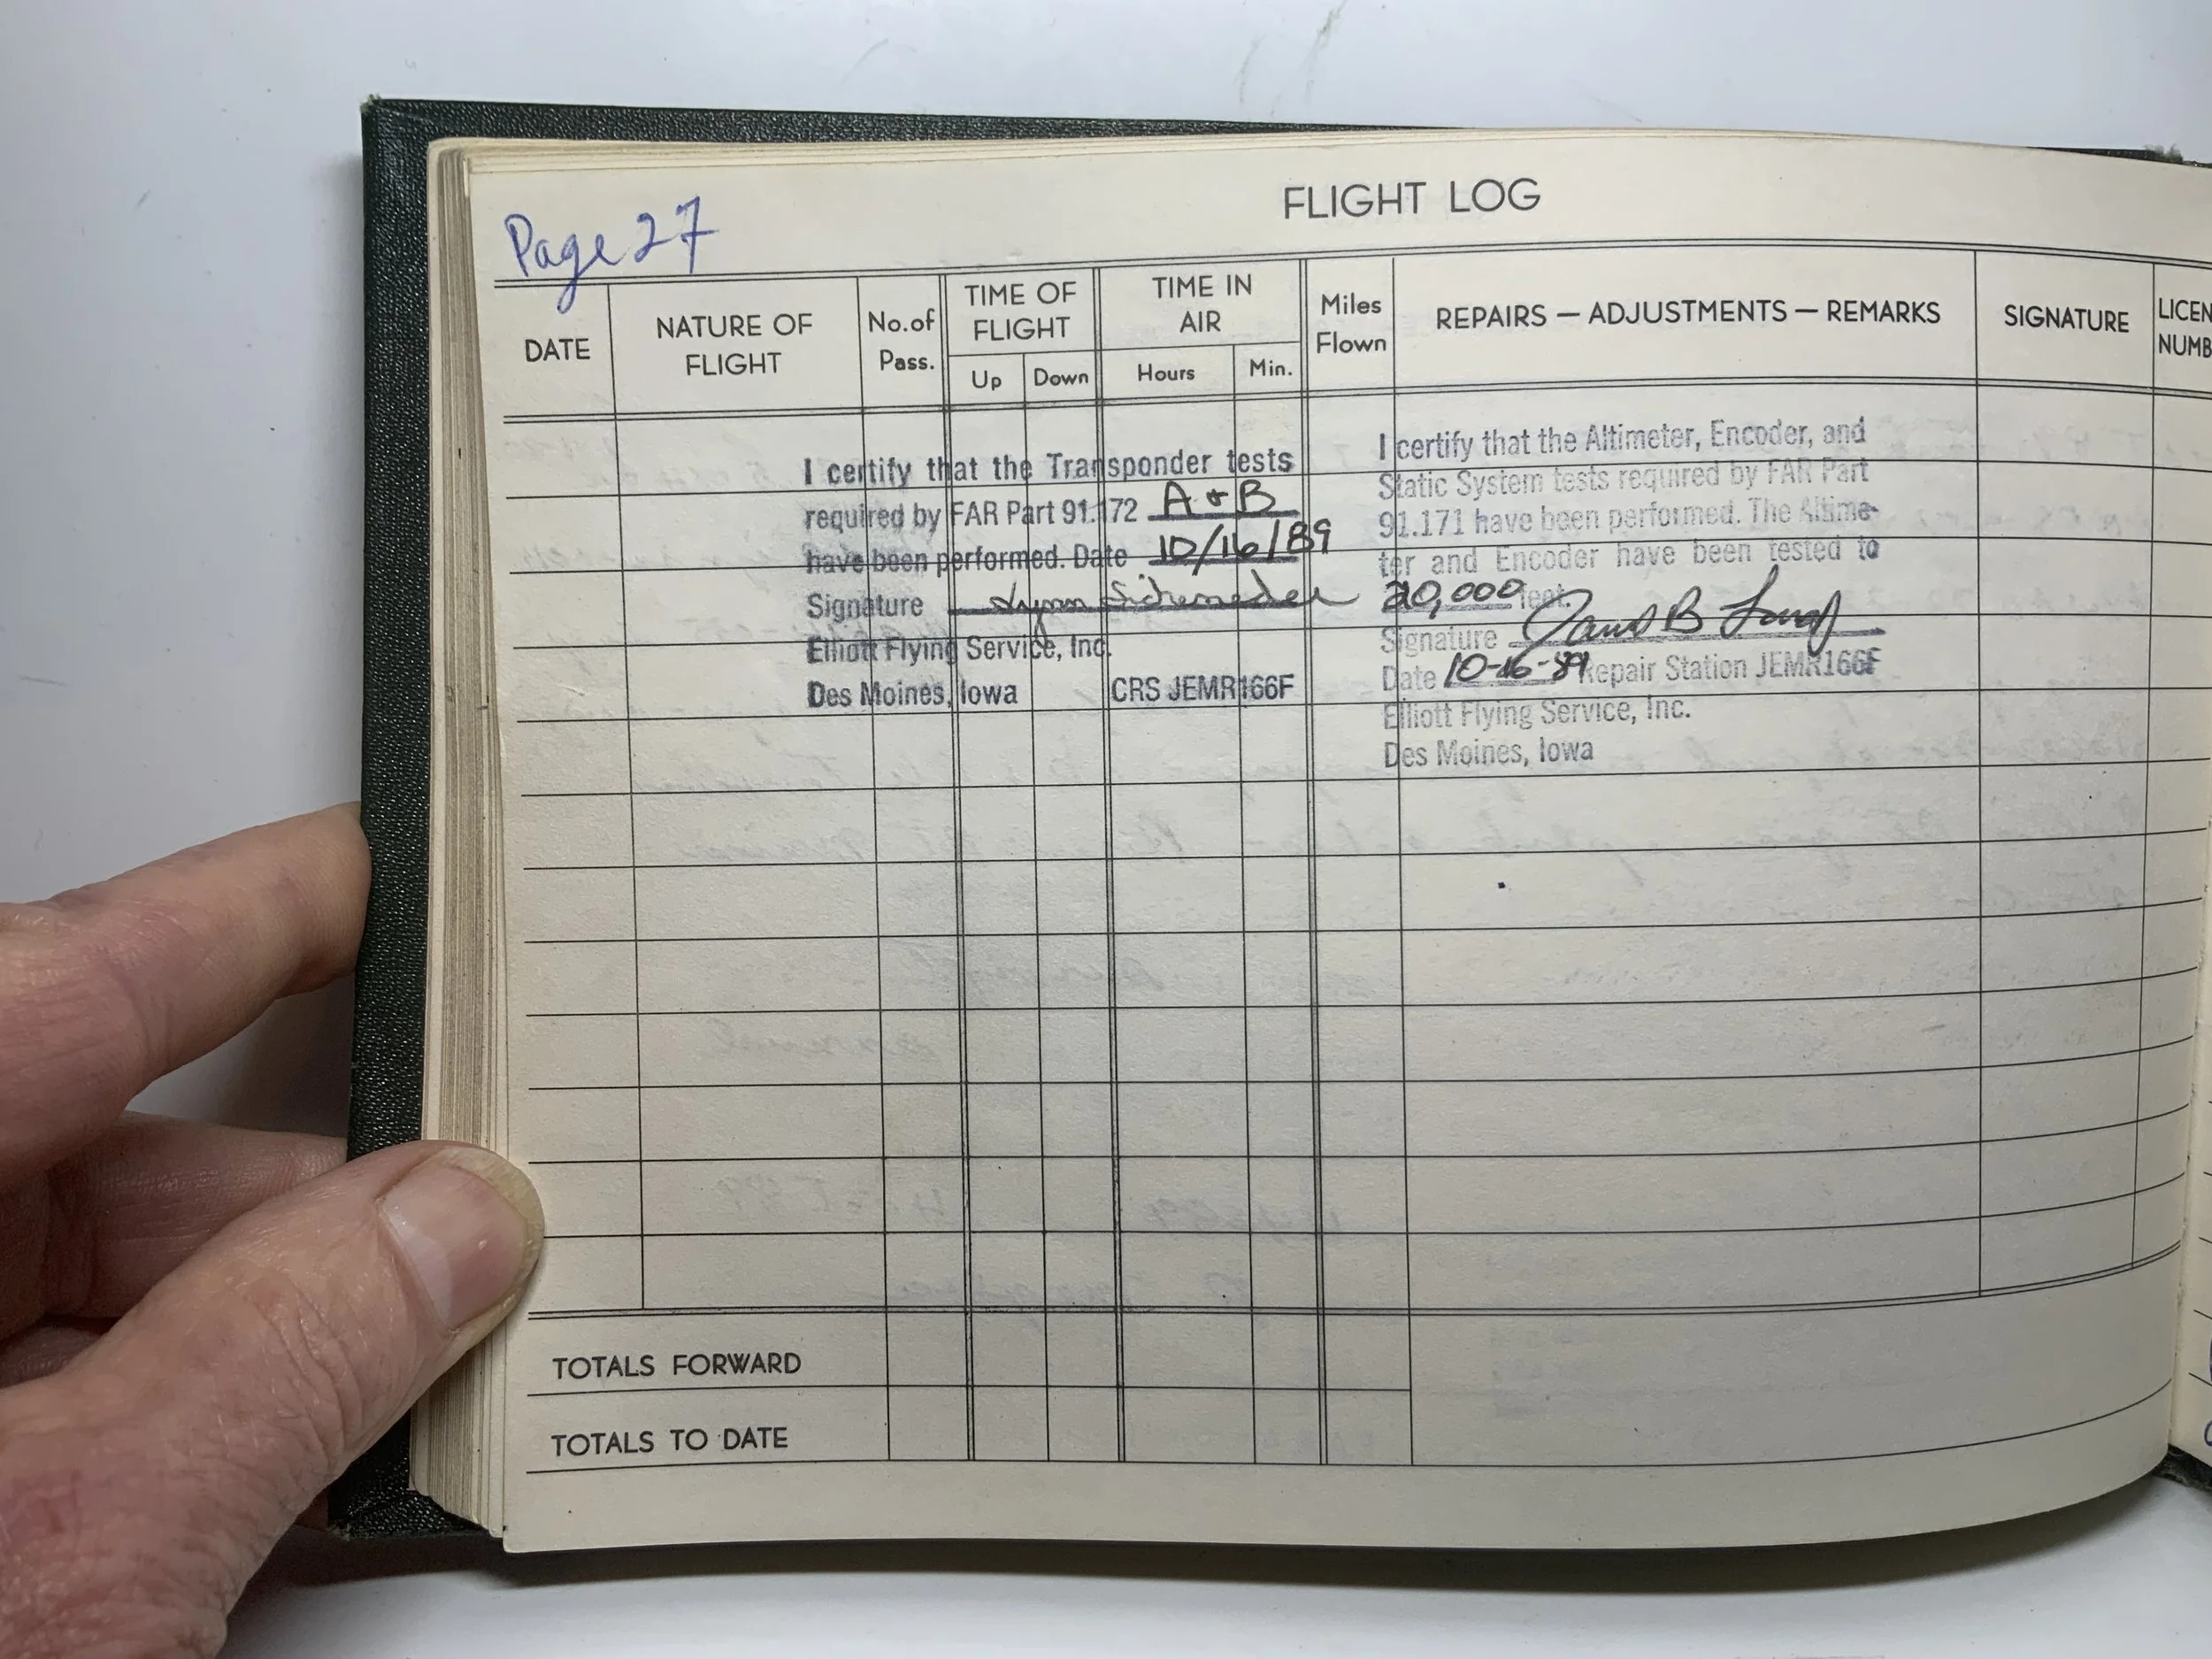 Page 27
FLIGHT LOG
DATE
NATURE OF
FLIGHT
No. of
Pass.
TIME OF
FLIGHT
Up Down
TIME IN
AIR
Hours Min.
Miles
Flown
REPAIRS — ADJUSTMENTS — REMARKS
SIGNATURE
LICEN
NUMB
I certify that the Transponder tests
required by FAR Part 91.172 A & B
have been performed. Date 10/16/89
Signature Lynn
Elliott Flying Service, Inc.
Des Moines, Iowa CRS JEMR166F
I certify that the Altimeter, Encoder, and
Static System tests required by FAR Part
91.171 have been performed. The Altime-
ter and Encoder have been tested to
20,000 feet.
Signature B
Date 10-16-89 Repair Station JEMR166F
Elliott Flying Service, Inc.
Des Moines, Iowa
TOTALS FORWARD
TOTALS TO DATE